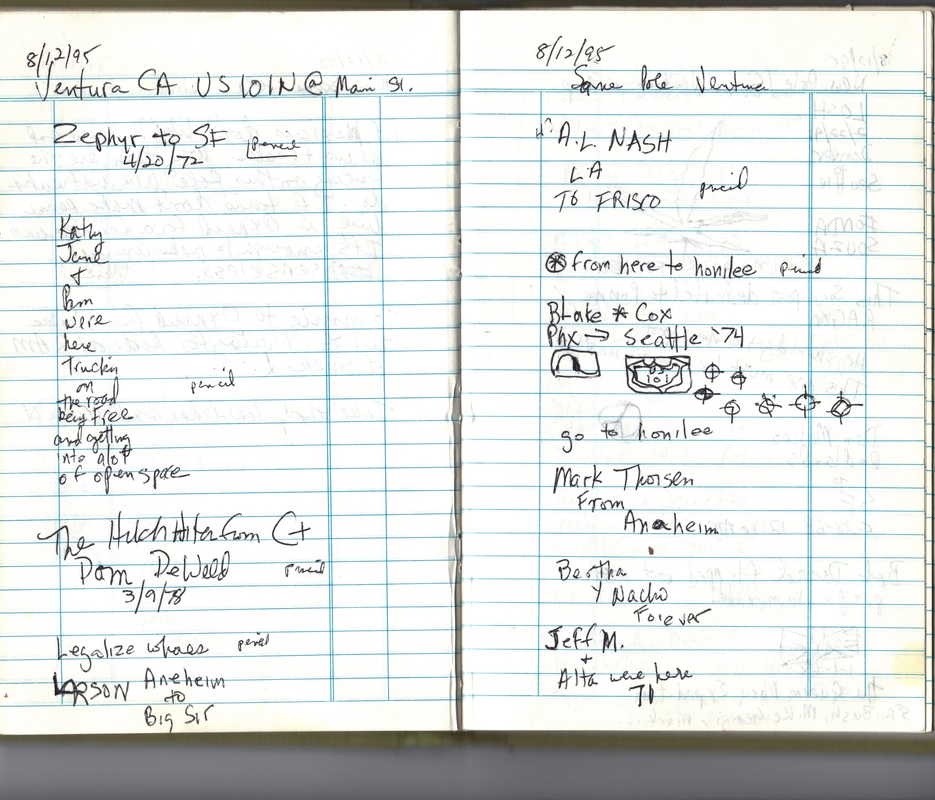 8/12/95
Ventura CA US 101N @ Main St.
Zephyr to SF
4/20/72 pencil
Kathy
Jane
+
Pam
were
here
Truckin
on
the road pencil
being free
and getting
into alot
of open space
The Hitch Hiter from Ct
Pam DeWeld pencil
3/9/78
Legalize whoes pencil
LARSON Anaheim
to
Big Sir
8/12/95
Same Pole Ventura
A.L. NASH
LA pencil
TO FRISCO
from here to honilee pencil
BLake * Cox
Phx → Seattle '74
101
go to honilee
Mark Thorsen
From
Anaheim
Bertha
Y Nacho
Forever
Jeff M.
+
Alta were here
71